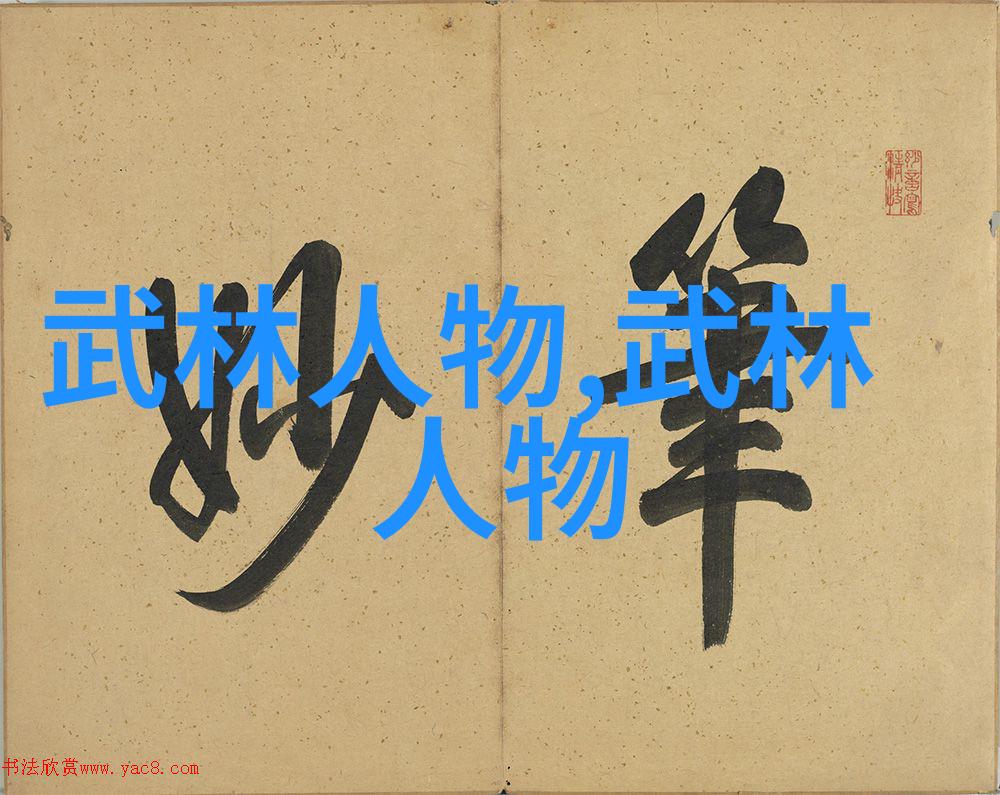 筆妙
武林人物,武林
人物
书法欣赏www.yac8.com